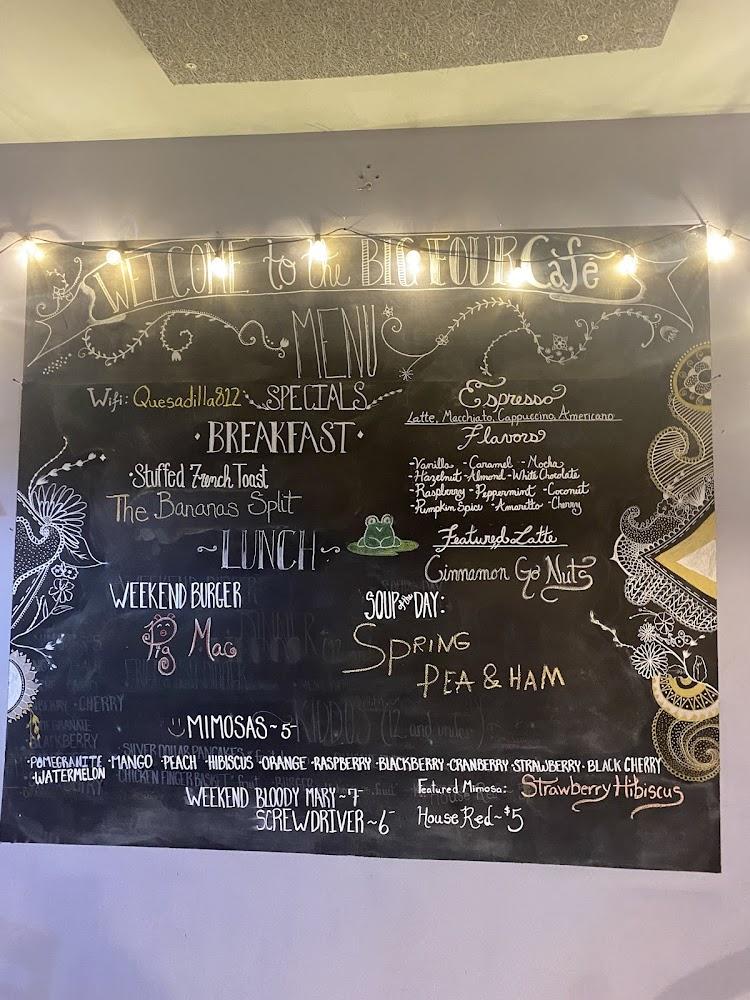 WELCOME to the BIG FOUR Café
MENU
Wifi: Quesadilla812
SPECIALS
·BREAKFAST·
·Stuffed French Toast
The Bananas Split
~LUNCH~
WEEKEND BURGER
Pig Mac
Espresso
Latte, Macchiato, Cappuccino, Americano
Flavors
-Vanilla -Caramel -Mocha
-Hazelnut -Almond -White Chocolate
-Raspberry -Peppermint -Coconut
-Pumpkin Spice -Amaretto -Cherry
Featured Latte
Cinnamon Go Nuts
SOUP of the DAY:
SPRING
PEA & HAM
MIMOSAS ~ 5-
·POMEGRANITE ·MANGO ·PEACH ·HIBISCUS ·ORANGE ·RASPBERRY ·BLACKBERRY ·CRANBERRY ·STRAWBERRY ·BLACK CHERRY
·WATERMELON
Featured Mimosa: Strawberry Hibiscus
WEEKEND BLOODY MARY ~ 7-
SCREWDRIVER ~ 6-
House Red ~ $5
KIDDOS (12 and under)
CHERRY
BLACKBERRY
SILVER DOLLAR PANCAKES
CHICKEN FINGER BASKET